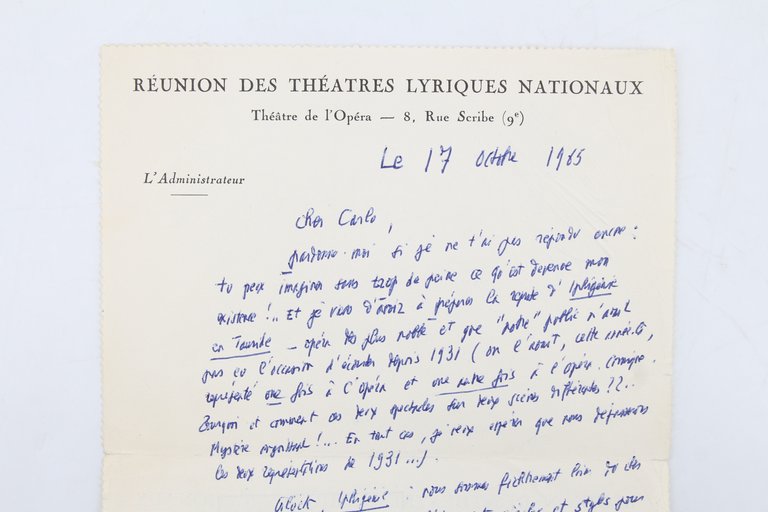 RÉUNION DES THÉATRES LYRIQUES NATIONAUX
Théâtre de l'Opéra — 8, Rue Scribe (9e)
Le 17 Octobre 1965
L'Administrateur
Cher Carlo,
pardonne-moi si je ne t'ai pas répondu encore :
tu peux imaginer sans trop de peine ce qu'est devenue mon
existence !.. Et je viens d'avoir à préparer la reprise d'Iphigénie
en Tauride — opéra des plus noble et que "notre" public n'avait
pas eu l'occasion d'écouter depuis 1931 (on l'avait, cette année-là,
représenté une fois à l'Opéra et une autre fois à l'Opéra-Comique.
Pourquoi et comment ces deux spectacles sur deux scènes différentes ??..
Mystère !... En tout cas, je veux espérer que nous dépasserons
les deux représentations de 1931...).
Gluck, Iphigénie : nous sommes loin
et styles pour